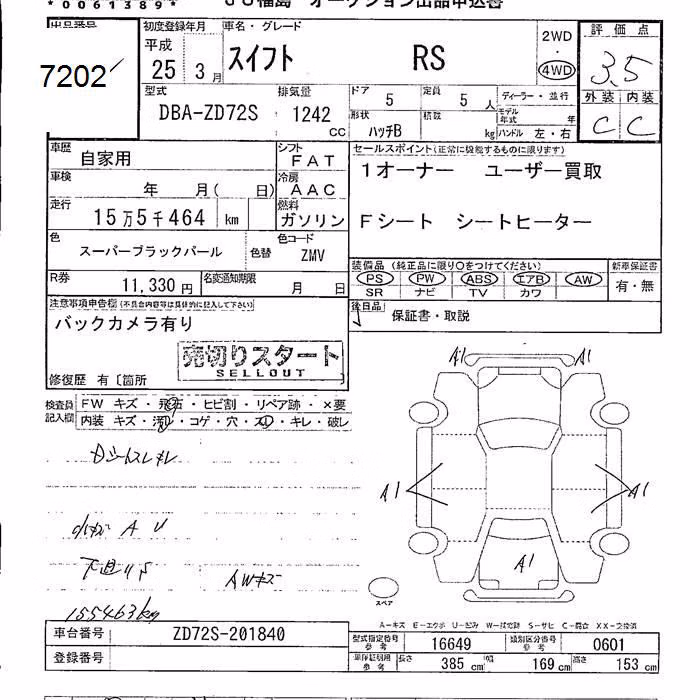 *0061389*
JU福島 オークション出品申込書
出品番号
7202
初度登録年月
平成
25 3月
車名・グレード
スイフト RS
2WD
・
4WD
評価点
3.5
外装 内装
C C
型式
DBA-ZD72S
排気量
1242
CC
ドア
5
定員
5 人
ディーラー・並行
形状
ハッチB
積載
kg
モデル年式 年
ハンドル 左・右
車歴
自家用
シフト
FAT
車検
年 月( 日)
冷房
AAC
走行
15万5千464 km
燃料
ガソリン
セールスポイント(正常に機能するものに限ります)
1オーナー ユーザー買取
Fシート シートヒーター
色
スーパーブラックパール
色替
色コード
ZMV
R券
11,330円
名変通知期限
月 日
装備品 (純正品に限り○をつけてください)
PS PW ABS エアB AW
SR ナビ TV カワ
新車保証書
有・無
注意事項申告欄(不具合内容等は具体的に記入して下さい)
バックカメラ有り
後日品
保証書・取説
売切りスタート
SELLOUT
修復歴 有〔箇所 〕
検査員記入欄
FW キズ・飛石・ヒビ割・リペア跡・×要
内装 キズ・汚れ・コゲ・穴・スレ・キレ・破レ
A1 A1
A1 A1
A1
Dシートスレ キレ
小キズ A U
下廻りサ
AWキズ
155463km
スペア
A-キズ E-エクボ U-凹み W-波電跡 S-サビ C-腐食 XX-交換済
車台番号 ZD72S-201840
登録番号
型式指定番号 参考 16649
類別区分番号 参考 0601
参考
長さ 385 cm
幅 169 cm
高さ 153 cm